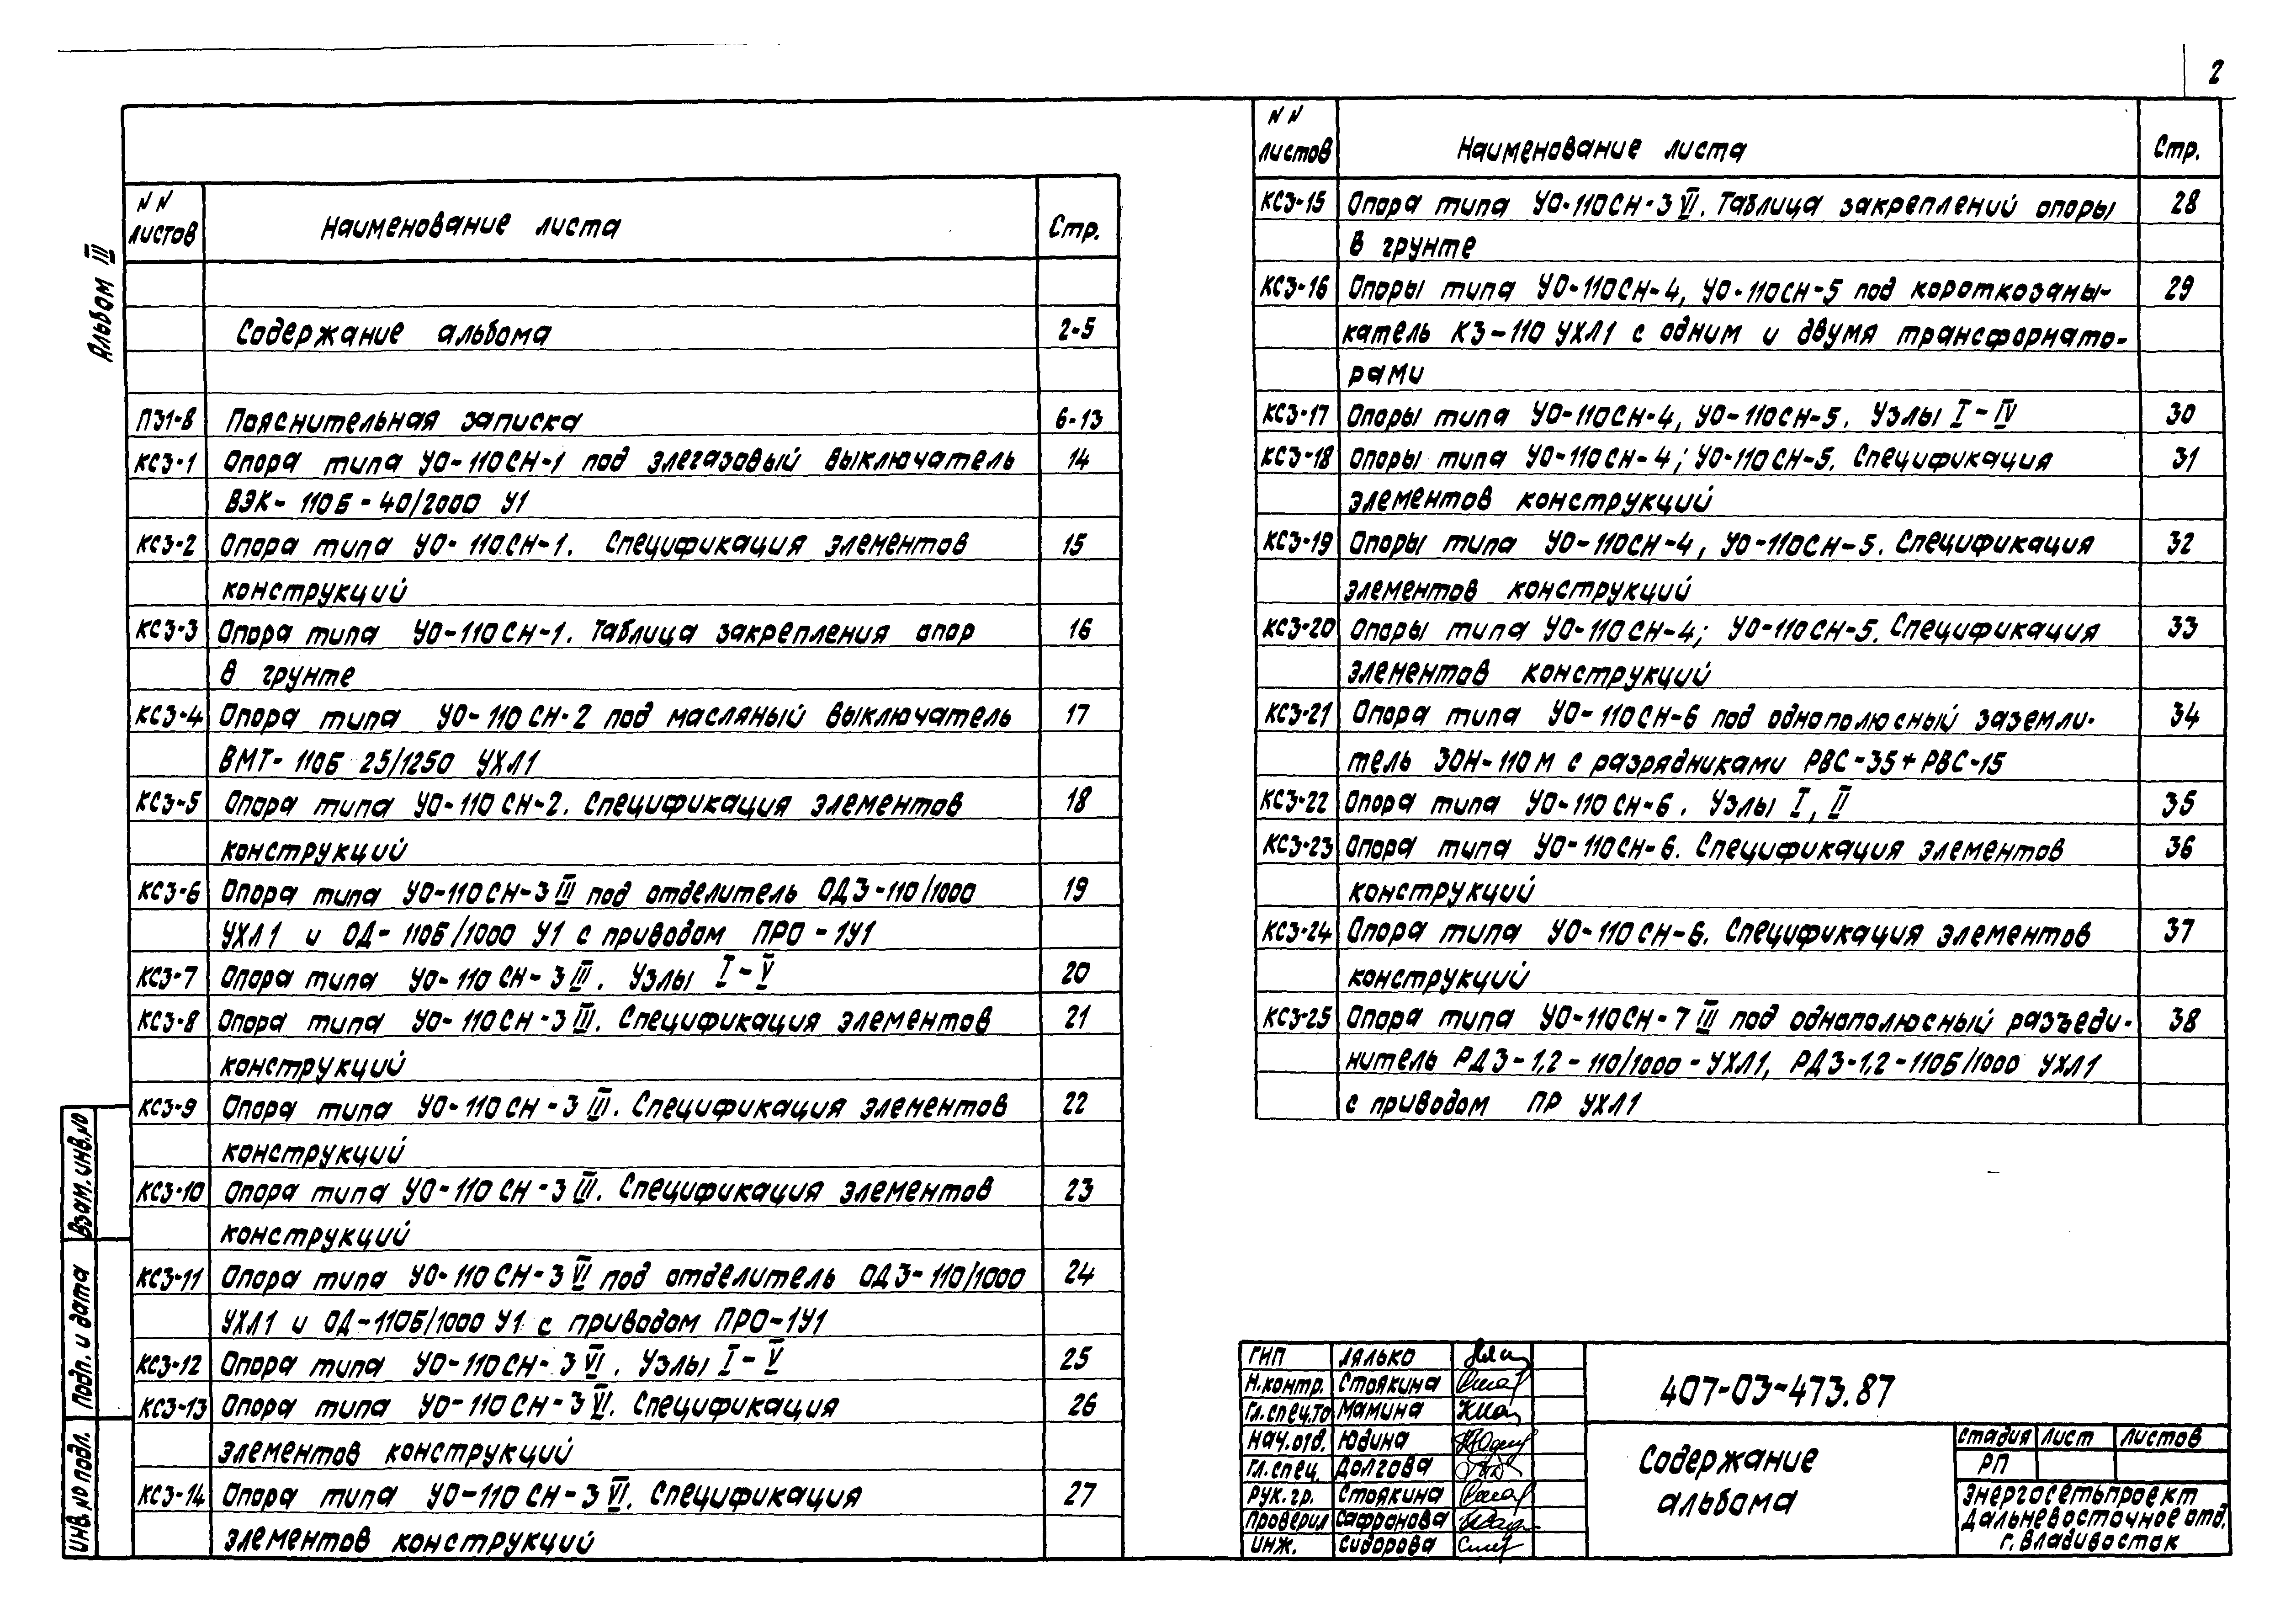 2
Альбом III
NN листов Наименование листа Стр.
Содержание альбома 2-5
ПЗ1-8 Пояснительная записка 6-13
КС3-1 Опора типа УО-110СН-1 под элегазовый выключатель 14
ВЭК-110Б-40/2000 У1
КС3-2 Опора типа УО-110СН-1. Спецификация элементов 15
конструкций
КС3-3 Опора типа УО-110СН-1. Таблица закрепления опор 16
в грунте
КС3-4 Опора типа УО-110СН-2 под масляный выключатель 17
ВМТ-110Б 25/1250 УХЛ1
КС3-5 Опора типа УО-110СН-2. Спецификация элементов 18
конструкций
КС3-6 Опора типа УО-110СН-3III под отделитель ОДЗ-110/1000 19
УХЛ1 и ОД-110Б/1000 У1 с приводом ПРО-1У1
КС3-7 Опора типа УО-110СН-3III. Узлы I-V 20
КС3-8 Опора типа УО-110СН-3III. Спецификация элементов 21
конструкций
КС3-9 Опора типа УО-110СН-3III. Спецификация элементов 22
конструкций
КС3-10 Опора типа УО-110СН-3III. Спецификация элементов 23
конструкций
КС3-11 Опора типа УО-110СН-3VI под отделитель ОДЗ-110/1000 24
УХЛ1 и ОД-110Б/1000 У1 с приводом ПРО-1У1
КС3-12 Опора типа УО-110СН-3VI. Узлы I-V 25
КС3-13 Опора типа УО-110СН-3VI. Спецификация 26
элементов конструкций
КС3-14 Опора типа УО-110СН-3VI. Спецификация 27
элементов конструкций
NN листов Наименование листа Стр.
КС3-15 Опора типа УО-110СН-3VI. Таблица закреплений опоры 28
в грунте
КС3-16 Опоры типа УО-110СН-4, УО-110СН-5 под короткозамы- 29
катель КЗ-110 УХЛ1 с одним и двумя трансформато-
рами
КС3-17 Опоры типа УО-110СН-4, УО-110СН-5. Узлы I-IV 30
КС3-18 Опоры типа УО-110СН-4; УО-110СН-5. Спецификация 31
элементов конструкций
КС3-19 Опоры типа УО-110СН-4, УО-110СН-5. Спецификация 32
элементов конструкций
КС3-20 Опоры типа УО-110СН-4; УО-110СН-5. Спецификация 33
элементов конструкций
КС3-21 Опора типа УО-110СН-6 под однополюсный заземли- 34
тель ЗОН-110М с разрядниками РВС-35+РВС-15
КС3-22 Опора типа УО-110СН-6. Узлы I, II 35
КС3-23 Опора типа УО-110СН-6. Спецификация элементов 36
конструкций
КС3-24 Опора типа УО-110СН-6. Спецификация элементов 37
конструкций
КС3-25 Опора типа УО-110СН-7III под однополюсный разъеди- 38
нитель РДЗ-1,2-110/1000-УХЛ1, РДЗ-1,2-110Б/1000 УХЛ1
с приводом ПР УХЛ1
Взам. инв. №
Подп. и дата
Инв. № подл.
ГИП Лялько
Н.контр. Стоякина
Гл.спец.то Мамина
Нач.отд. Юдина
Гл.спец. Долгова
Рук.гр. Стоякина
Проверил Сафронова
Инж. Сидорова
407-03-473.87
Содержание
альбома
Стадия Лист Листов
РП
Энергосетьпроект
Дальневосточное отд.
г. Владивосток